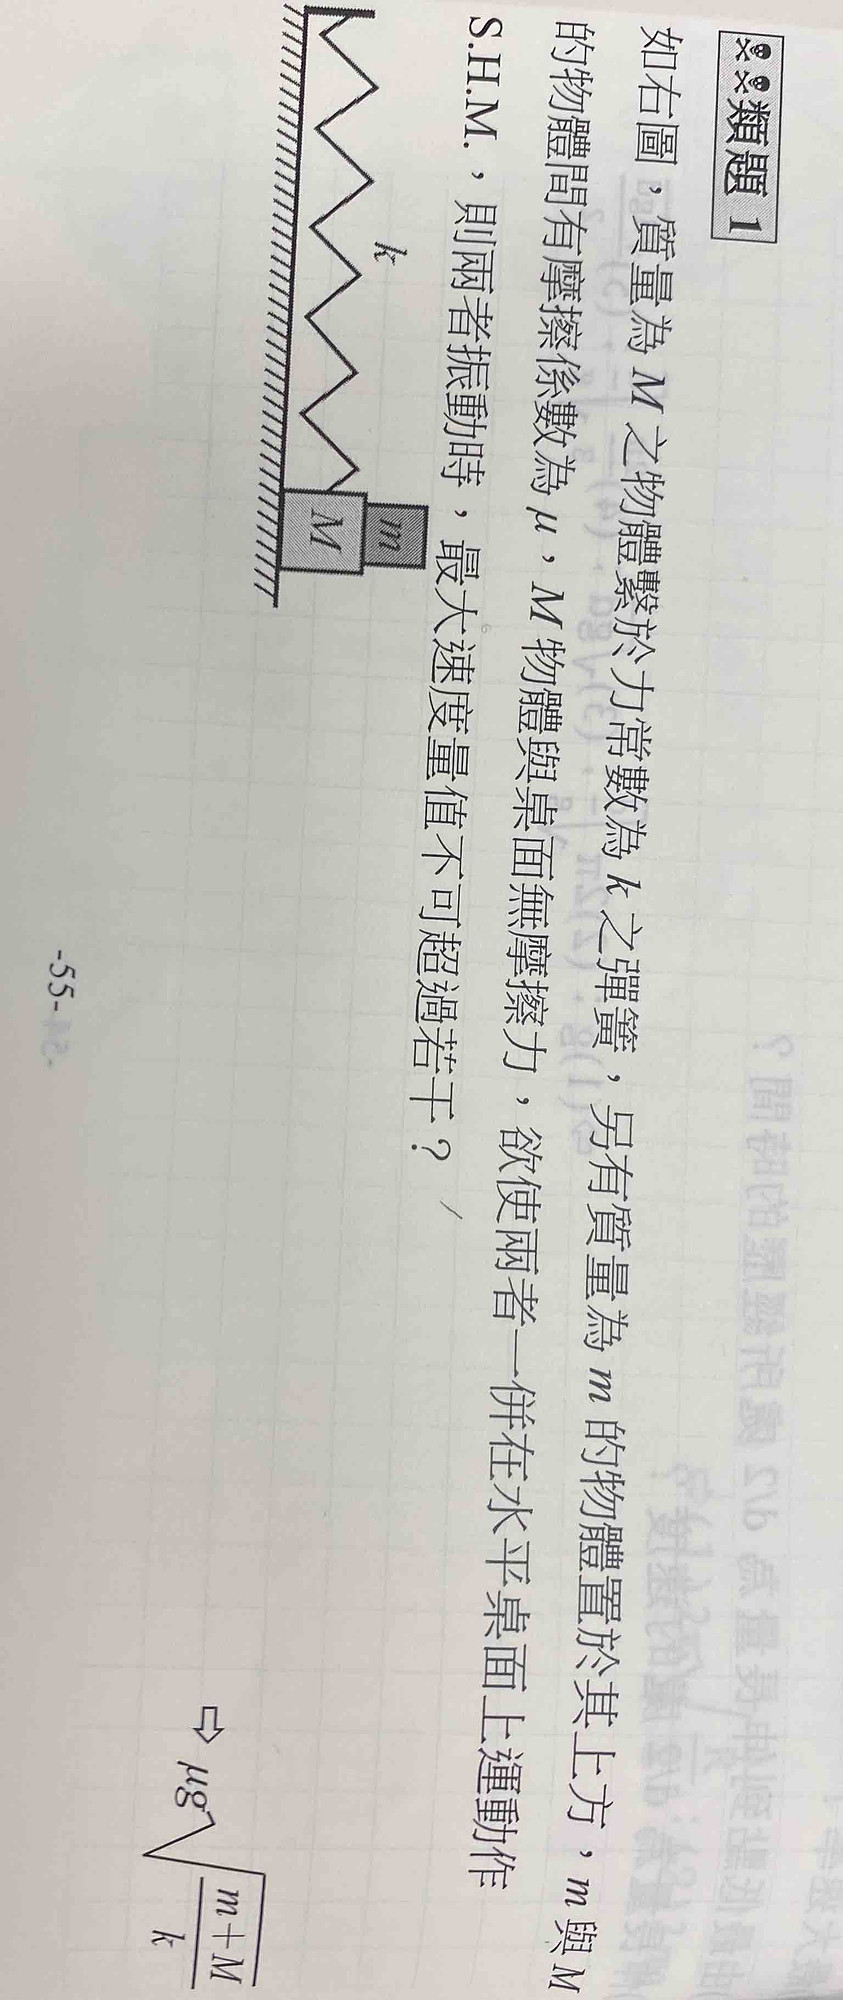 類題 1
如右圖，質量為 M 之物體繫於力常數為 k 之彈簧，另有質量為 m 的物體置於其上方，m 與 M
的物體間有摩擦係數為 μ，M 物體與桌面無摩擦力，欲使兩者一併在水平桌面上運動作
S.H.M.，則兩者振動時，最大速度量值不可超過若干？
k
m
M
⇨ μg√((m+M)/k)
-55-